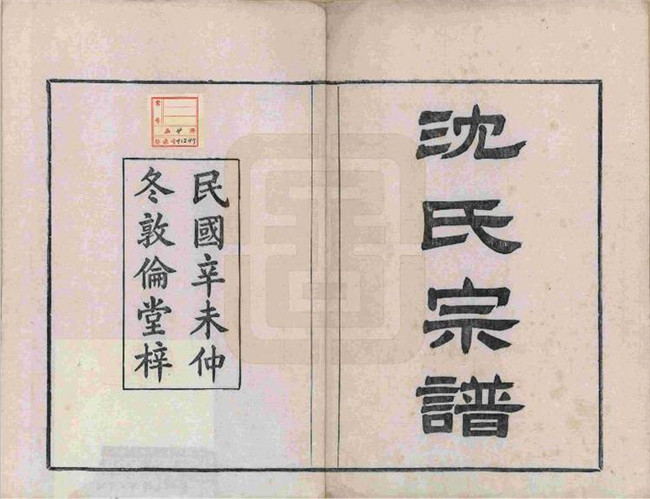 沈氏宗譜
民國辛未仲
冬敦倫堂梓